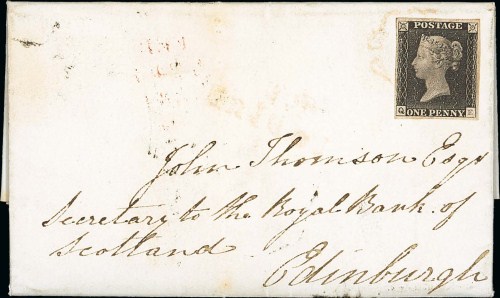 POSTAGE
ONE PENNY
John Thomson Esqr
Secretary to the Royal Bank of
Scotland
Edinburgh